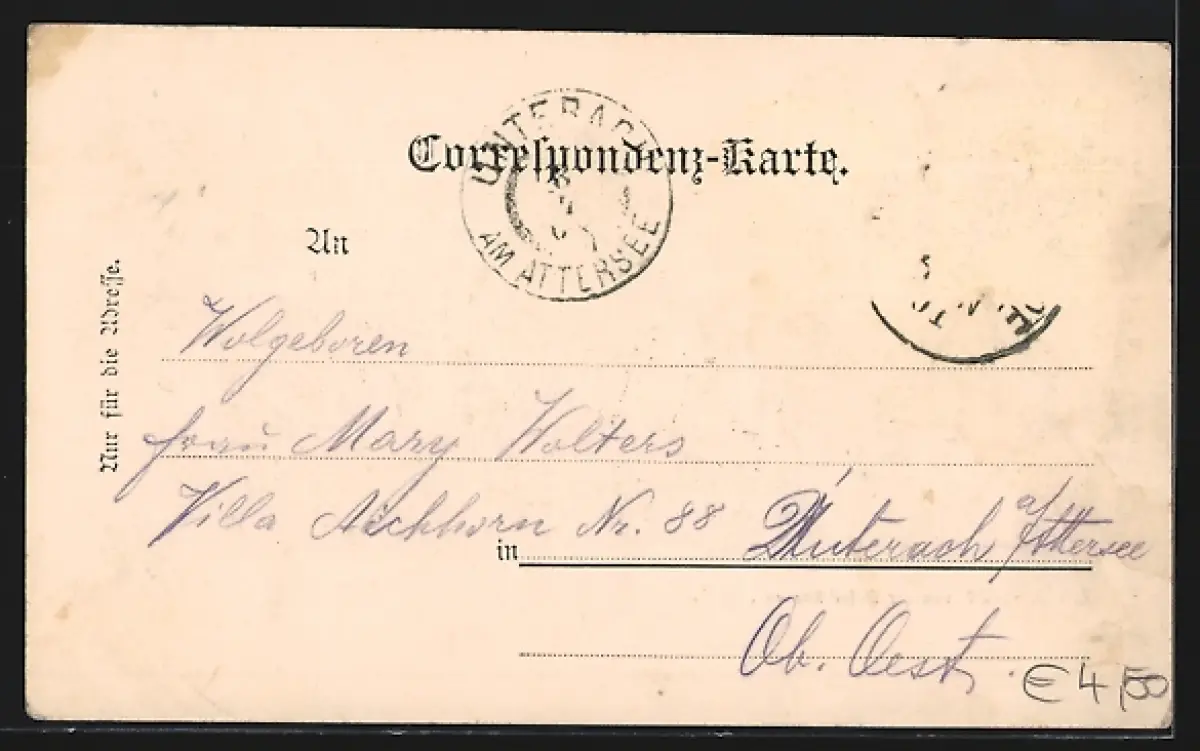 Correspondenz-Karte.
UNTERACH
AM ATTERSEE
An
Nur für die Adresse.
Wolgeboren
Frau Mary Wolters
Villa Aichhorn Nr. 88
in Unterach a/Attersee
Ob. Oest.
€ 4,50